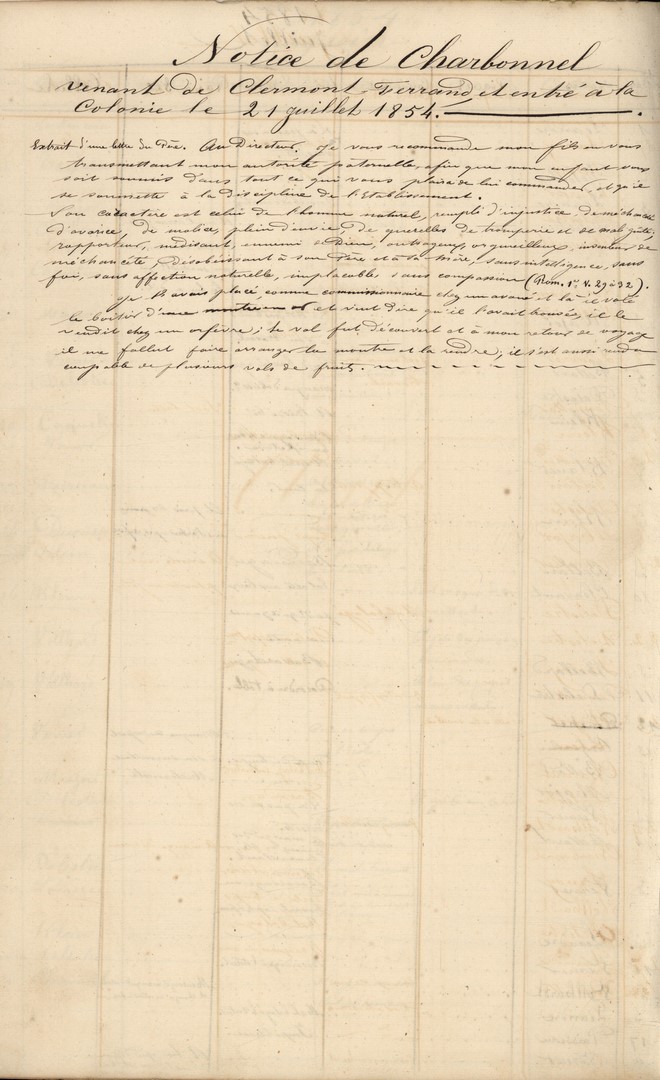 Notice de Charbonnel
venant de Clermont-Ferrand et entré à la
Colonie le 21 juillet 1854.
Extrait d'une lettre du Père. Au Directeur. Je vous recommande mon fils en vous
transmettant mon autorité paternelle, afin que mon enfant vous
soit soumis dans tout ce qui vous plaira de lui commander, et qu'il
se soumette à la discipline de l'Etablissement.
Son caractère est celui de l'homme naturel, rempli d'injustice, de méchanceté
d'avarice, de malice, plein d'envie, de querelles de tromperie et de malignité,
rapporteur, médisant, ennemi de Dieu, outrageux, orgueilleux, inventeur de
méchanceté, désobéissant à son Père et à sa Mère, sans intelligence, sans
foi, sans affection naturelle, implacable sans compassion (Rom. 1er V. 29 à 32).
Je l'avais placé comme commissionnaire chez un avoué et là il vola
le boitier d'une montre en or et vint dire qu'il l'avait trouvée, il le
vendit chez un orfèvre; le vol fut découvert et à mon retour de voyage
il me fallut faire arranger la montre et la rendre; il s'est aussi rendu
coupable de plusieurs vols de fruits.